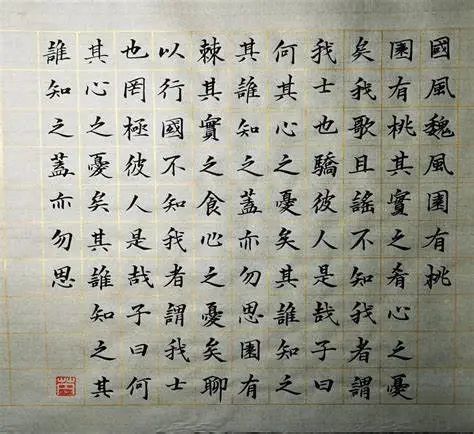 國風魏風園有桃
園有桃其實之肴心之憂
矣我歌且謠不知我者謂
我士也驕彼人是哉子曰
何其心之憂矣其誰知之
其誰知之蓋亦勿思園有
棘其實之食心之憂矣聊
以行國不知我者謂我士
也罔極彼人是哉子曰何
其心之憂矣其誰知之其
誰知之蓋亦勿思